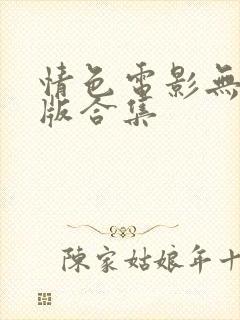 情色電影無
版合集
陳家姑娘年十